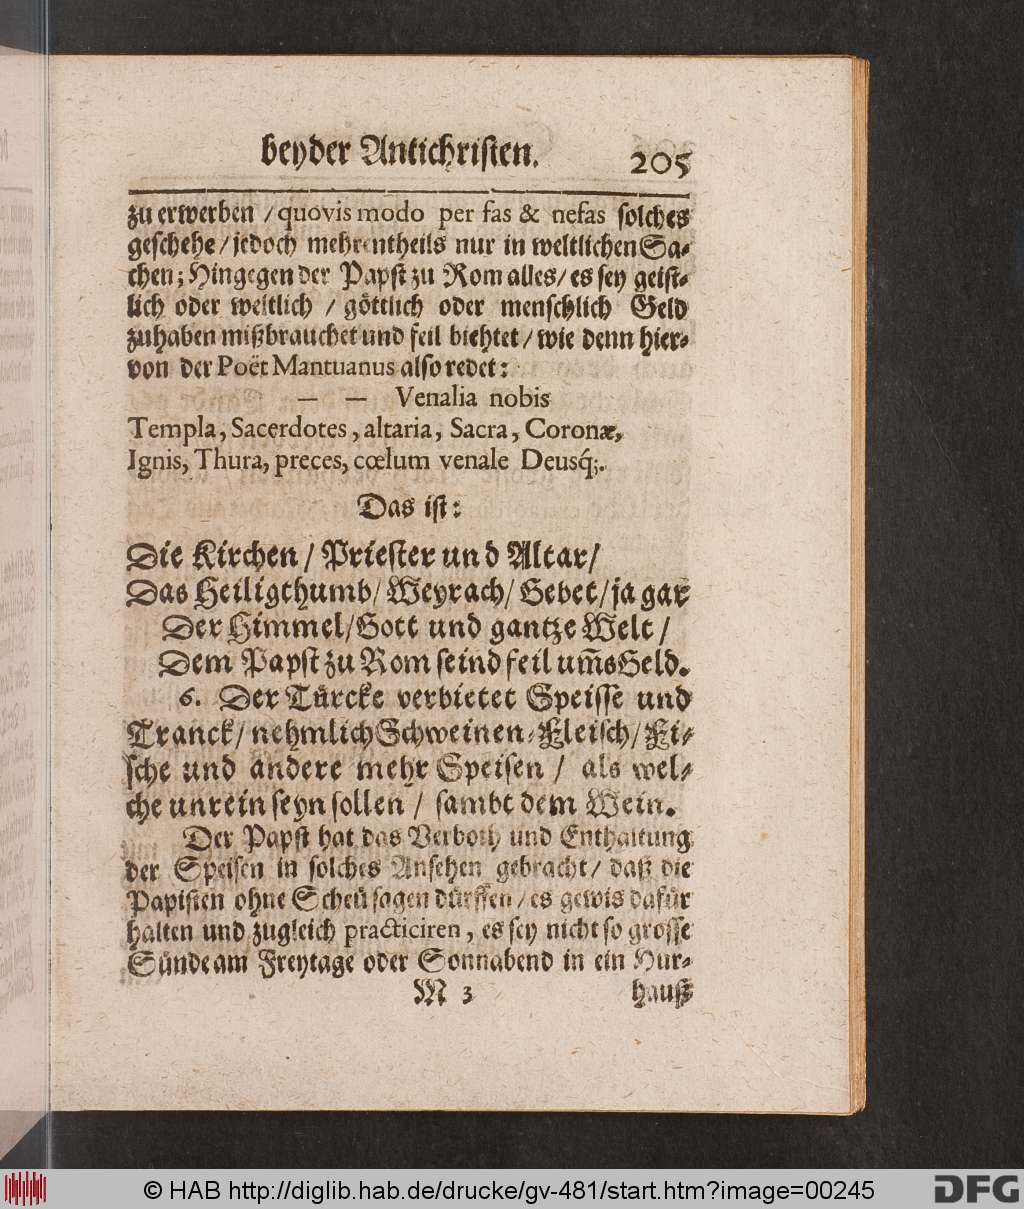 beyder Antichristen. 205
zu erwerben / quovis modo per fas & nefas solches
geschehe / jedoch mehrentheils nur in weltlichen Sa-
chen; Hingegen der Papst zu Rom alles / es sey geist-
lich oder weltlich / göttlich oder menschlich Geld
zuhaben mißbrauchet und feil biehtet / wie denn hier-
von der Poët Mantuanus also redet:
— — Venalia nobis
Templa, Sacerdotes, altaria, Sacra, Coronæ,
Ignis, Thura, preces, cœlum venale Deusq́;.
Das ist:
Die Kirchen / Priester und Altar /
Das Heiligthumb / Weyrach / Gebet / ja gar
Der Himmel / Gott und gantze Welt /
Dem Papst zu Rom seind feil um̃s Geld.
6. Der Türcke verbietet Speisse und
Tranck / nehmlich Schweinen-Fleisch / Fi-
sche und andere mehr Speisen / als wel-
che unrein seyn sollen / sambt dem Wein.
Der Papst hat das Verboth und Enthaltung
der Speisen in solches Ansehen gebracht / daß die
Papisten ohne Scheü sagen dürffen / es gewis dafür
halten und zugleich practiciren, es sey nicht so grosse
Sünde am Freytage oder Sonnabend in ein Hur-
M 3 hauß
© HAB http://diglib.hab.de/drucke/gv-481/start.htm?image=00245 DFG